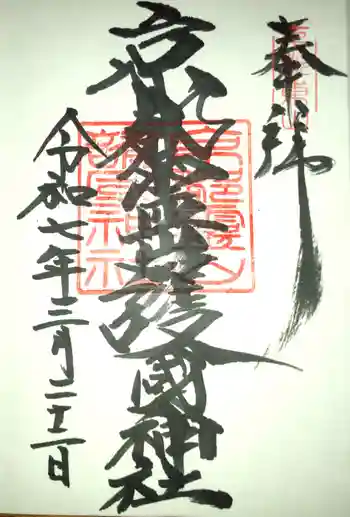 奉拝
京都霊山護國神社
令和七年三月二十二日